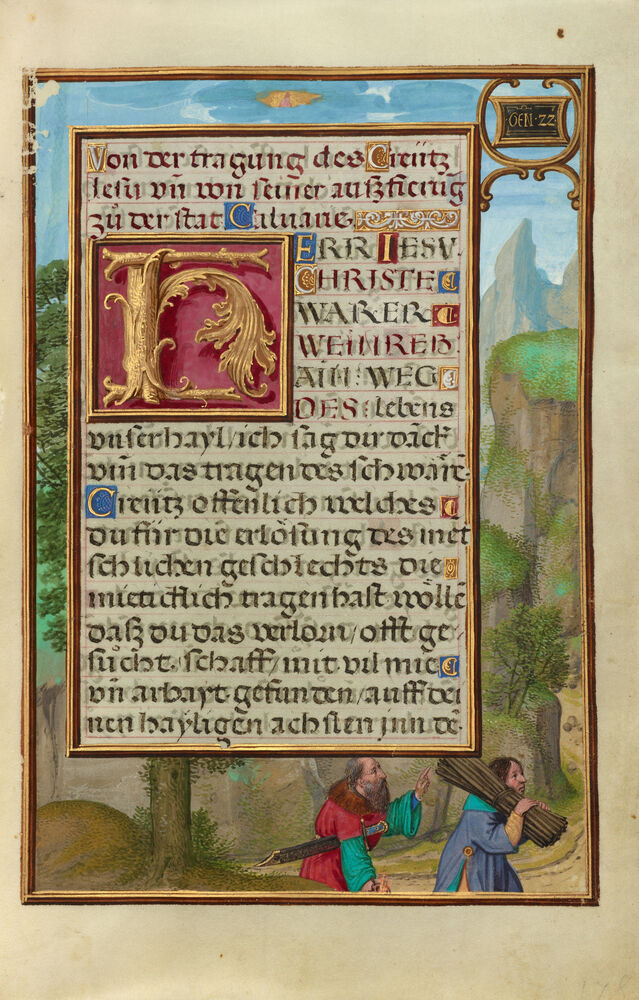 GEN · 22
Von der tragung des Creütz
Jesu vn̄ von seiner außfierūg
zů der stat Calvarie.
HERR IESV
CHRISTE
WARER
WEINREB
AIN WEG
DES lebens
vnser hayl/ ich sag dir dāck
vm̄ das tragen des schwārē
Creütz offenlich welches
du für die erlösung des mēt
schlichen geschlechts die
mieticklich tragen hast wöllē
daß du das verlorn/ offt ge
sücht. schaff/ mit vil mie
vn̄ arbayt gefunden/ auff dei
nen hayligen achslen jnn dē